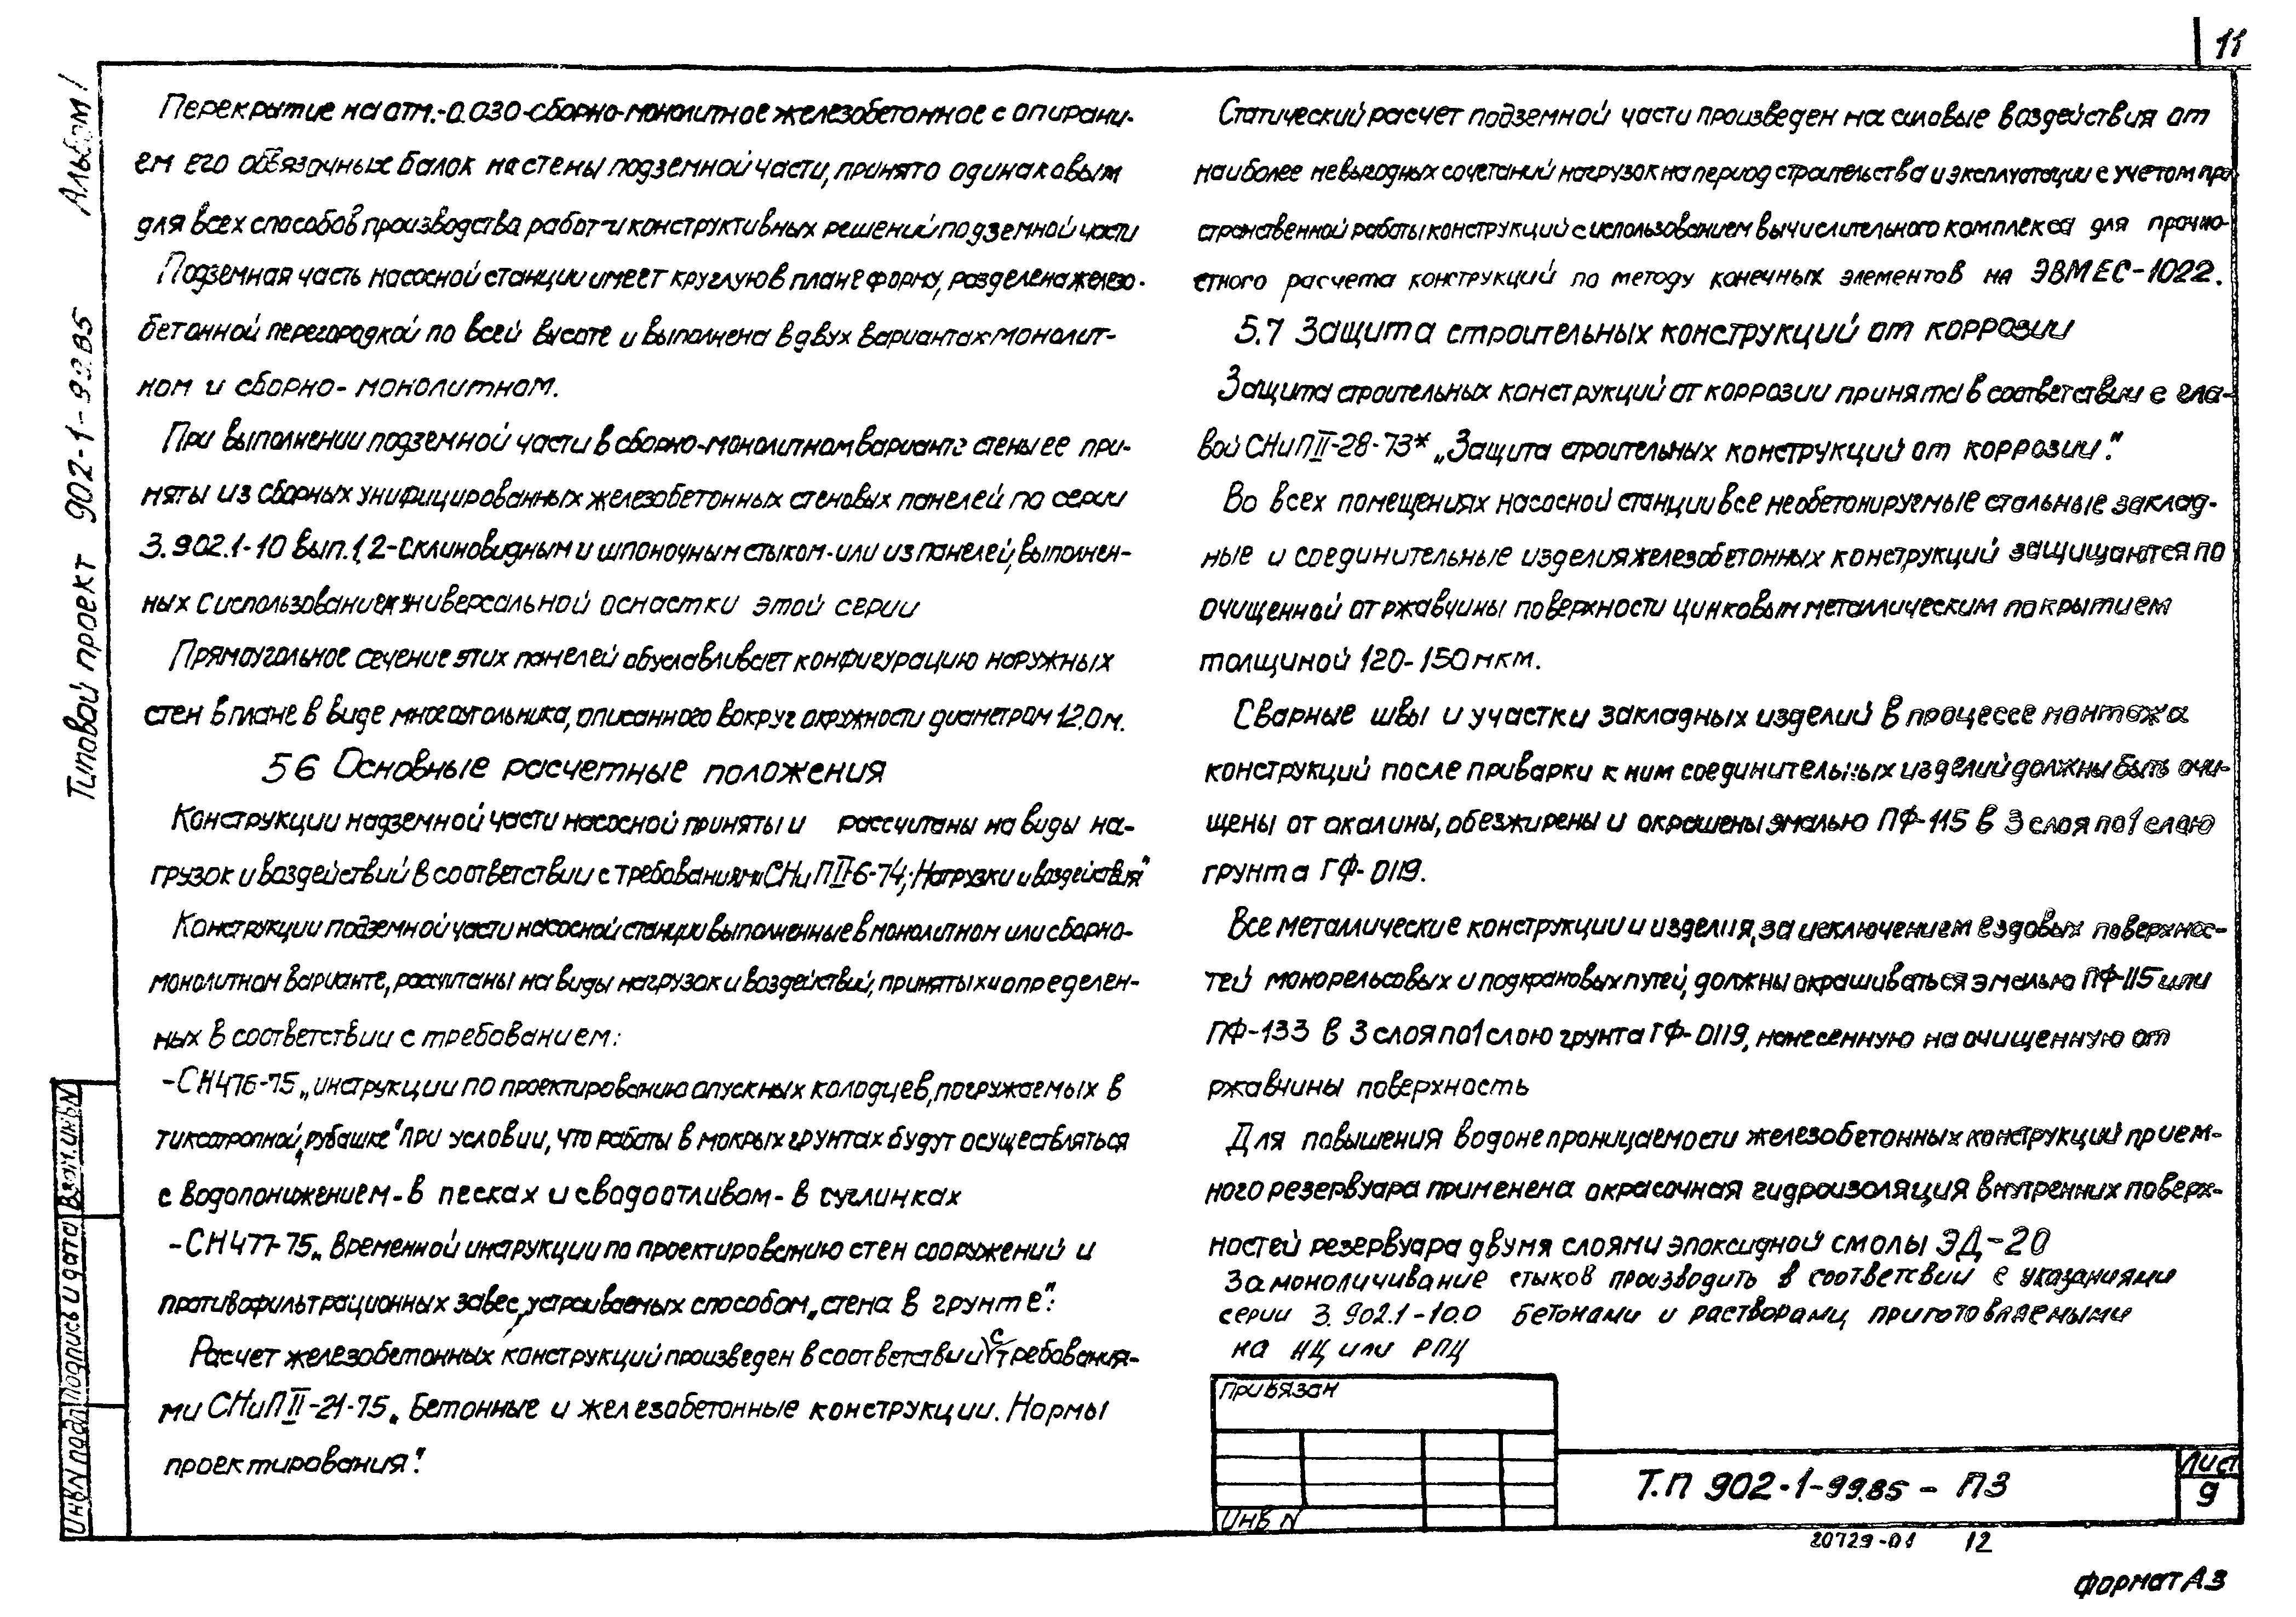 11
Альбом I
Типовой проект 902-1-99.85
Перекрытие на отм.-0.030-сборно-монолитное железобетонное с опирани-
ем его обвязочных балок на стены подземной части, принято одинаковым
для всех способов производства работ и конструктивных решений подземной части
Подземная часть насосной станции имеет круглую в плане форму, разделена железо-
бетонной перегородкой по всей высоте и выполнена в двух вариантах-монолит-
ном и сборно-монолитном.
При выполнении подземной части в сборно-монолитном варианте стены ее при-
няты из сборных унифицированных железобетонных стеновых панелей по серии
3.902.1-10 вып.1,2-с клиновидным и шпоночным стыком-или из панелей, выполнен-
ных с использованием универсальной оснастки этой серии
Прямоугольное сечение этих панелей обуславливает конфигурацию наружных
стен в плане в виде многоугольника, описанного вокруг окружности диаметром 12.0м.
5 6 Основные расчетные положения
Конструкции надземной части насосной приняты и рассчитаны на виды на-
грузок и воздействий в соответствии с требованиями СНиП II-6-74 „Нагрузки и воздействия"
Конструкции подземной части насосной станции выполненные в монолитном или сборно-
монолитном варианте, рассчитаны на виды нагрузок и воздействий, принятых и определен-
ных в соответствии с требованием:
-СН 476-75 „инструкции по проектированию опускных колодцев, погружаемых в
тиксотропной „рубашке" при условии, что работы в мокрых грунтах будут осуществляться
с водопонижением-в песках и с водоотливом-в суглинках
-СН 477-75 „Временной инструкции по проектированию стен сооружений и
противофильтрационных завес, устраиваемых способом „стена в грунте":
Расчет железобетонных конструкций произведен в соответствии с требования-
ми СНиП II-21-75 „Бетонные и железобетонные конструкции. Нормы
проектирования".
Статический расчет подземной части произведен на силовые воздействия от
наиболее невыгодных сочетаний нагрузок на период строительства и эксплуатации с учетом про
странственной работы конструкций с использованием вычислительного комплекса для прочно-
стного расчета конструкций по методу конечных элементов на ЭВМ ЕС-1022.
5.7 Защита строительных конструкций от коррозии
Защита строительных конструкций от коррозии принята в соответствии с гла-
вой СНиП II-28-73* „Защита строительных конструкций от коррозии".
Во всех помещениях насосной станции все необетонируемые стальные заклад-
ные и соединительные изделия железобетонных конструкций защищаются по
очищенной от ржавчины поверхности цинковым металлическим покрытием
толщиной 120-150мкм.
Сварные швы и участки закладных изделий в процессе монтажа
конструкций после приварки к ним соединительных изделий должны быть очи-
щены от окалины, обезжирены и окрашены эмалью ПФ-115 в 3 слоя по 1 слою
грунта ГФ-0119.
Все металлические конструкции и изделия, за исключением ездовых поверхнос-
тей монорельсовых и подкрановых путей, должны окрашиваться эмалью ПФ-115 или
ПФ-133 в 3 слоя по 1 слою грунта ГФ-0119, нанесенную на очищенную от
ржавчины поверхность
Для повышения водонепроницаемости железобетонных конструкций прием-
ного резервуара применена окрасочная гидроизоляция внутренних поверх-
ностей резервуара двумя слоями эпоксидной смолы ЭД-20
Замоноличивание стыков производить в соответсвии с указаниями
серии 3.902.1-10.0 бетонами и растворами, приготовляемыми
на НЦ или РПЦ
Привязан
Инв N
Т.П 902-1-99.85 - ПЗ
Лист
9
Инв N подл Подпись и дата Взам. инв N
20729-01 12
Формат А3